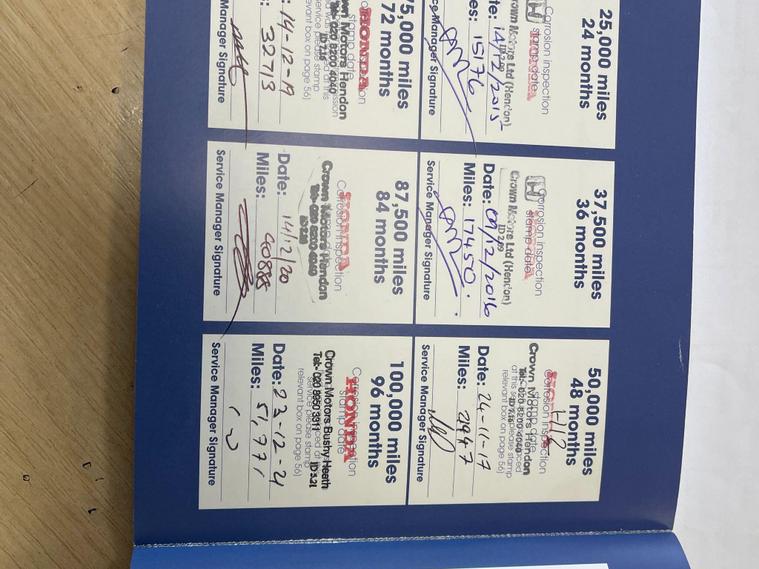 25,000 miles
24 months
Corrosion inspection
stamp date
HONDA
Crown Motors Ltd (Hendon)
ID 289
Date: 14/12/2015
Miles: 15176
Service Manager Signature
37,500 miles
36 months
Corrosion inspection
stamp date
HONDA
Crown Motors Ltd (Hendon)
ID 289
Date: 09/12/2016
Miles: 17450.
Service Manager Signature
50,000 miles
48 months
Corrosion inspection
stamp date
Crown Motors Hendon
Tel:- 020 8200 4040
at this service please stamp
relevant box on page 56)
Date: 24-11-17
Miles:
Service Manager Signature
75,000 miles
72 months
HONDA
stamp date
Crown Motors Hendon
Tel:- 020 8200 4040
service please stamp
relevant box on page 56)
: 14-12-19
: 32713
Manager Signature
87,500 miles
84 months
HONDA
Corrosion inspection
stamp date
Crown Motors Hendon
Tel:- 020 8200 4040
Date: 14/12/20
Miles: 40888
Service Manager Signature
100,000 miles
96 months
HONDA
stamp date
Crown Motors Bushy Heath
Tel:- 020 8950 3311
ID 321
service please stamp
relevant box on page 56)
Date: 23-12-21
Miles: 51,771
Service Manager Signature